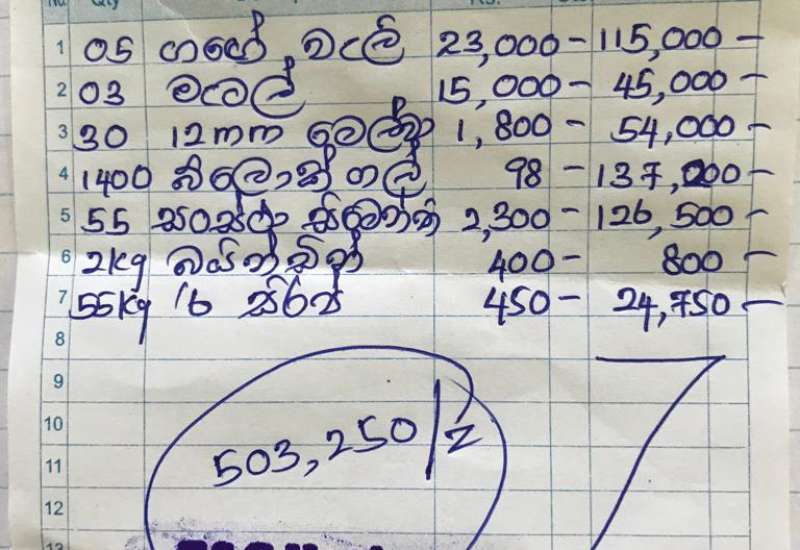 No Qty Rs.
1 05 ගඟේ වැලි 23,000 - 115,000 -
2 03 මැටල් 15,000 - 45,000 -
3 30 12mm 1,800 - 54,000 -
4 1400 බ්ලොක් ගල් 98 - 137,200 -
5 55 සංස්ථා සිමෙන්ති 2,300 - 126,500 -
6 2kg බයින්ඩින් 400 - 800 -
7 55kg 16 සිරප් 450 - 24,750 -
8
9
10
503,250/=
11
12
13